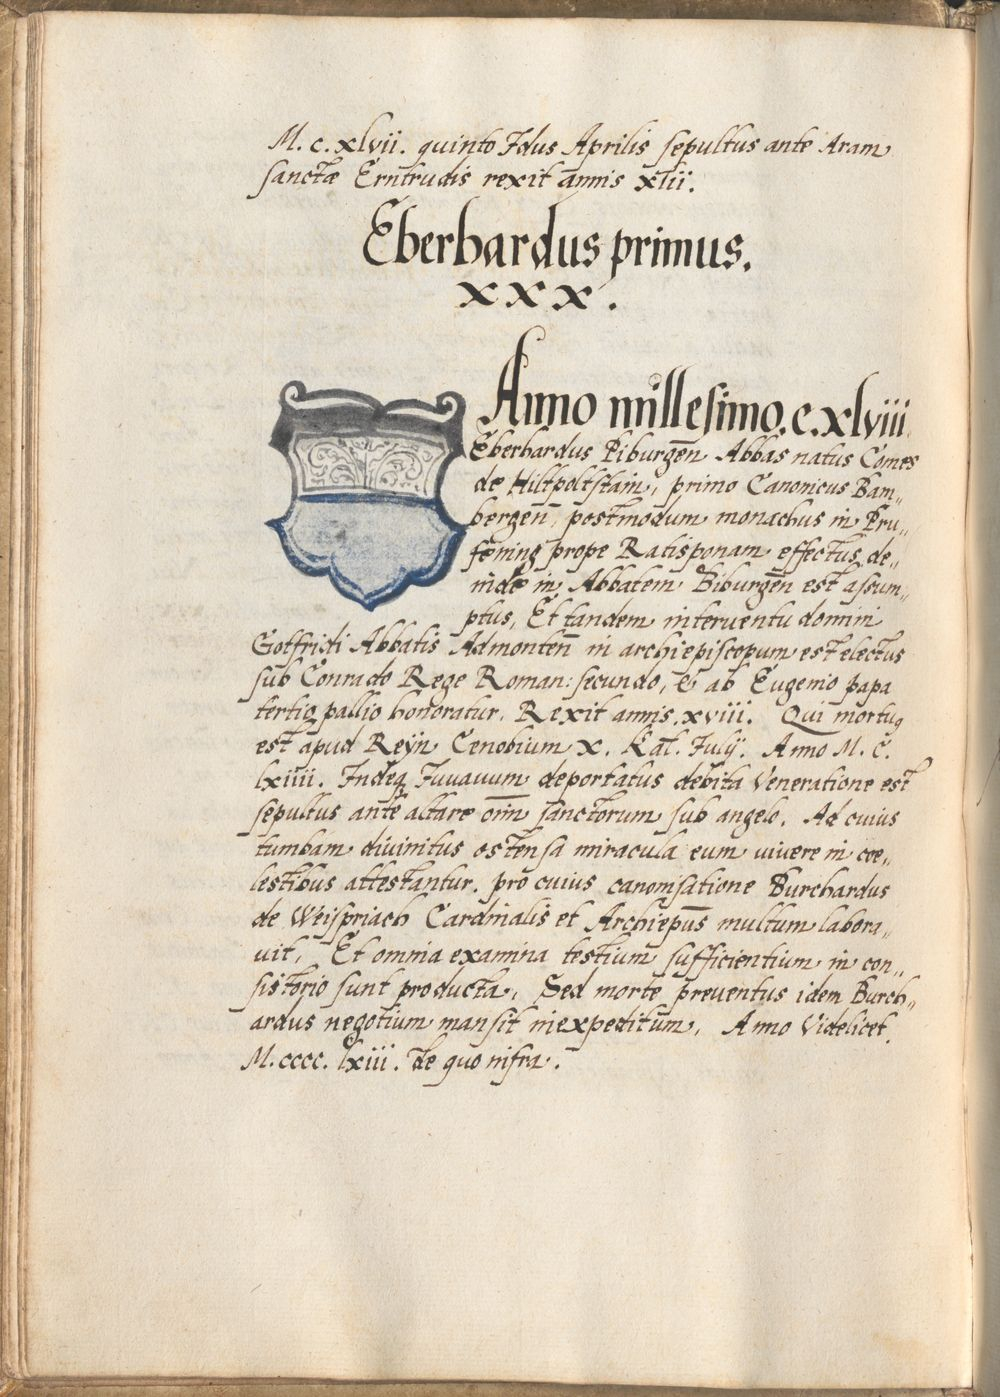 M. c. xlvii. quinto Idus Aprilis sepultus ante Aram
sanctæ Erntrudis rexit annis xlii.
Eberhardus primus.
xxx.
Anno millesimo. c. xlviii.
Eberhardus Piburgen̄ Abbas natus Comes
de Hiltpoltstain, primo Canonicus Bam„
bergen̄, postmodum monachus in Pru„
fening prope Ratisponam effectus, de„
inde in Abbatem Biburgen̄ est assum„
ptus, Et tandem interuentu domini
Gotfridi Abbatis Admonten̄ in archiepiscopum est electus
sub Conrado Rege Roman: secundo, & ab Eugenio papa
tertio pallio honoratur. Rexit annis. xviii. Qui mortuꝯ
est apud Reÿn Cenobium X. Kal. Julÿ. Anno M. C.
lxiiii. Indeqꝫ Juuauum deportatus debita Veneratione est
sepultus ante altare om̄n sanctorum sub angelo. Ad cuius
tumbam diuinitus ostensa miracula eum viuere in coe„
lestibus attestantur. pro cuius canonisatione Burchardus
de Weispriach Cardinalis et Archiep̄us multum labora„
uit, Et omnia examina testium sufficientium in con„
sistorio sunt producta, Sed morte preuentus idem Burch„
ardus negotium mansit inexpeditum, Anno Videlicet
M. cccc. lxiii. de quo infra.